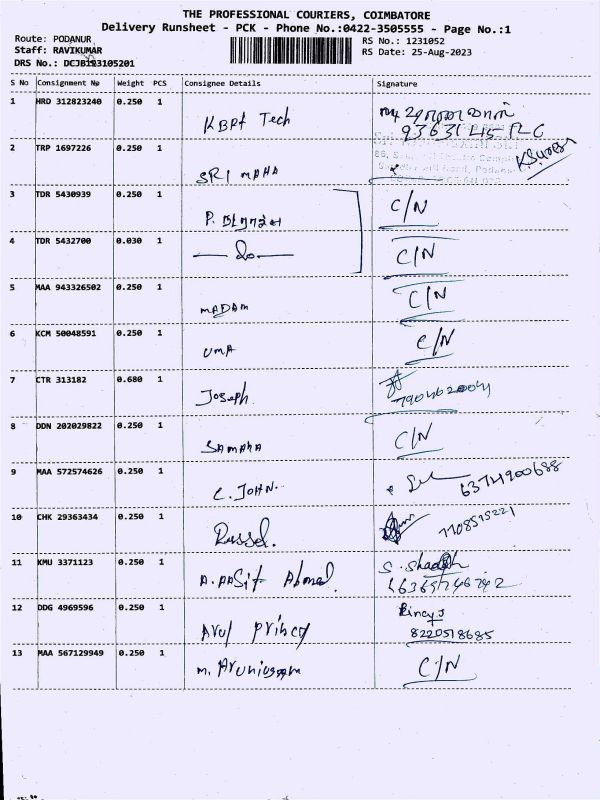 THE PROFESSIONAL COURIERS, COIMBATORE
Delivery Runsheet - PCK - Phone No.:0422-3505555 - Page No.:1
Route: PODANUR
RS No.: 1231052
Staff: RAVIKUMAR
RS Date: 25-Aug-2023
DRS No.: DCJB123105201
S No Consignment № Weight PCS Consignee Details Signature
1 HRD 312823240 0.250 1 KBPF Tech
2 TRP 1697226 0.250 1 SRI MAHA
3 TDR 5430939 0.250 1 P. C/N
4 TDR 5432700 0.030 1 — do — C/N
5 MAA 943326502 0.250 1 MADAM C/N
6 KCM 50048591 0.250 1 UMA C/N
7 CTR 313182 0.680 1 Joseph 7904620041
8 DDN 202029822 0.250 1 C/N
9 MAA 572574626 0.250 1 C. JOHN. 6374900688
10 CHK 29363434 0.250 1 Russel. 7708515221
11 KMU 3371123 0.250 1 A. AASif Ahmad. S.
12 DDG 4969596 0.250 1 Arul Princy Rincy J
8220518685
13 MAA 567129949 0.250 1 M. C/N